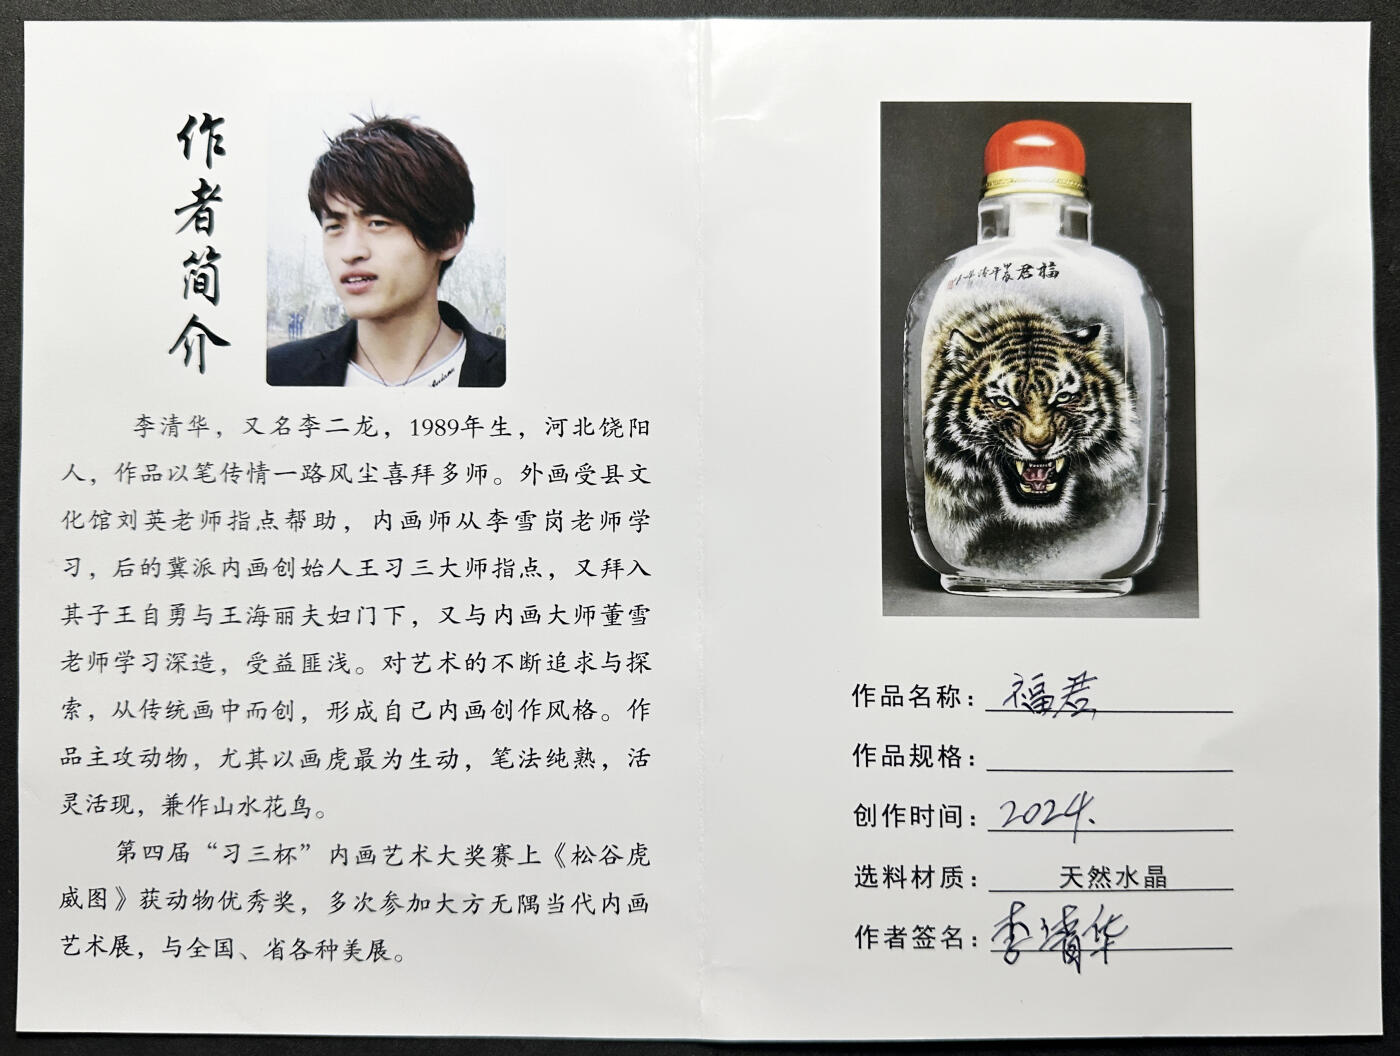 作者简介
李清华，又名李二龙，1989年生，河北饶阳
人，作品以笔传情一路风尘喜拜多师。外画受县文
化馆刘英老师指点帮助，内画师从李雪岗老师学
习，后的冀派内画创始人王习三大师指点，又拜入
其子王自勇与王海丽夫妇门下，又与内画大师董雪
老师学习深造，受益匪浅。对艺术的不断追求与探
索，从传统画中而创，形成自己内画创作风格。作
品主攻动物，尤其以画虎最为生动，笔法纯熟，活
灵活现，兼作山水花鸟。
第四届“习三杯”内画艺术大奖赛上《松谷虎
威图》获动物优秀奖，多次参加大方无隅当代内画
艺术展，与全国、省各种美展。
福君
作品名称：福君
作品规格：
创作时间：2024.
选料材质：天然水晶
作者签名：李清华